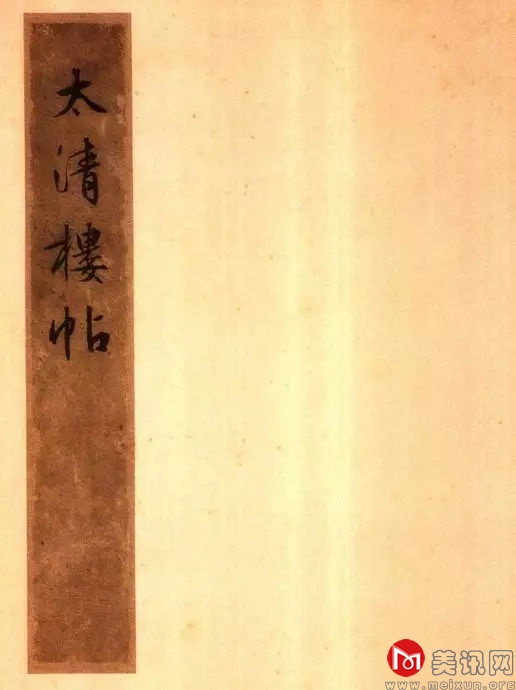 太清樓帖
美讯网
www.meixun.org